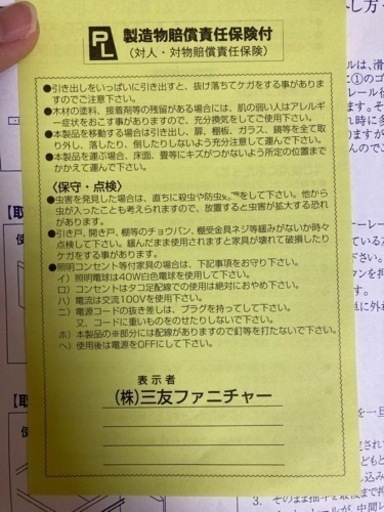 PL 製造物賠償責任保険付
(対人・対物賠償責任保険)
●引き出しをいっぱいに引き出すと、抜け落ちてケガをする事があり
ますのでご注意下さい。
●木材の塗料、接着剤等の残留がある場合には、肌の弱い人はアレルギ
ー症状をおこす事がありますので、充分換気をしてご使用下さい。
●本製品を移動する場合は引出し、扉、棚板、ガラス、鏡等を全て取
り外し、落したり、倒したりしないよう充分注意して運んで下さい。
●本製品を運ぶ場合、床面、畳等にキズがつかないよう所定の位置まで
かかえて運んで下さい。
<保守・点検>
●虫害を発見した場合は、直ちに殺虫や防虫をして下さい。他から
虫が入ったことも考えられますので、放置すると虫害が拡大する恐れ
があります。
●引き戸、開き戸、棚等のチョウバン、棚受金具ネジ等緩みがないか時々
点検して下さい。緩んだまま使用されますと家具が壊れて破損したり
ケガをする事があります。
●照明コンセント等付家具の場合は、下記事項をお守り下さい。
イ)照明電球は40W白色電球を使用して下さい。
ロ)コンセントはタコ足配線での使用は絶対におやめ下さい。
ハ)電流は交流100Vを使用して下さい。
ニ)電源コードの抜き差しは、プラグを持ってして下さい。
又、コードに重いものをのせたりしないで下さい。
ホ)本製品の※部分には配線がありますので釘等を打たないで下さい。
ヘ)使用後は電源をOFFにして下さい。
表示者
(株)三友ファニチャー